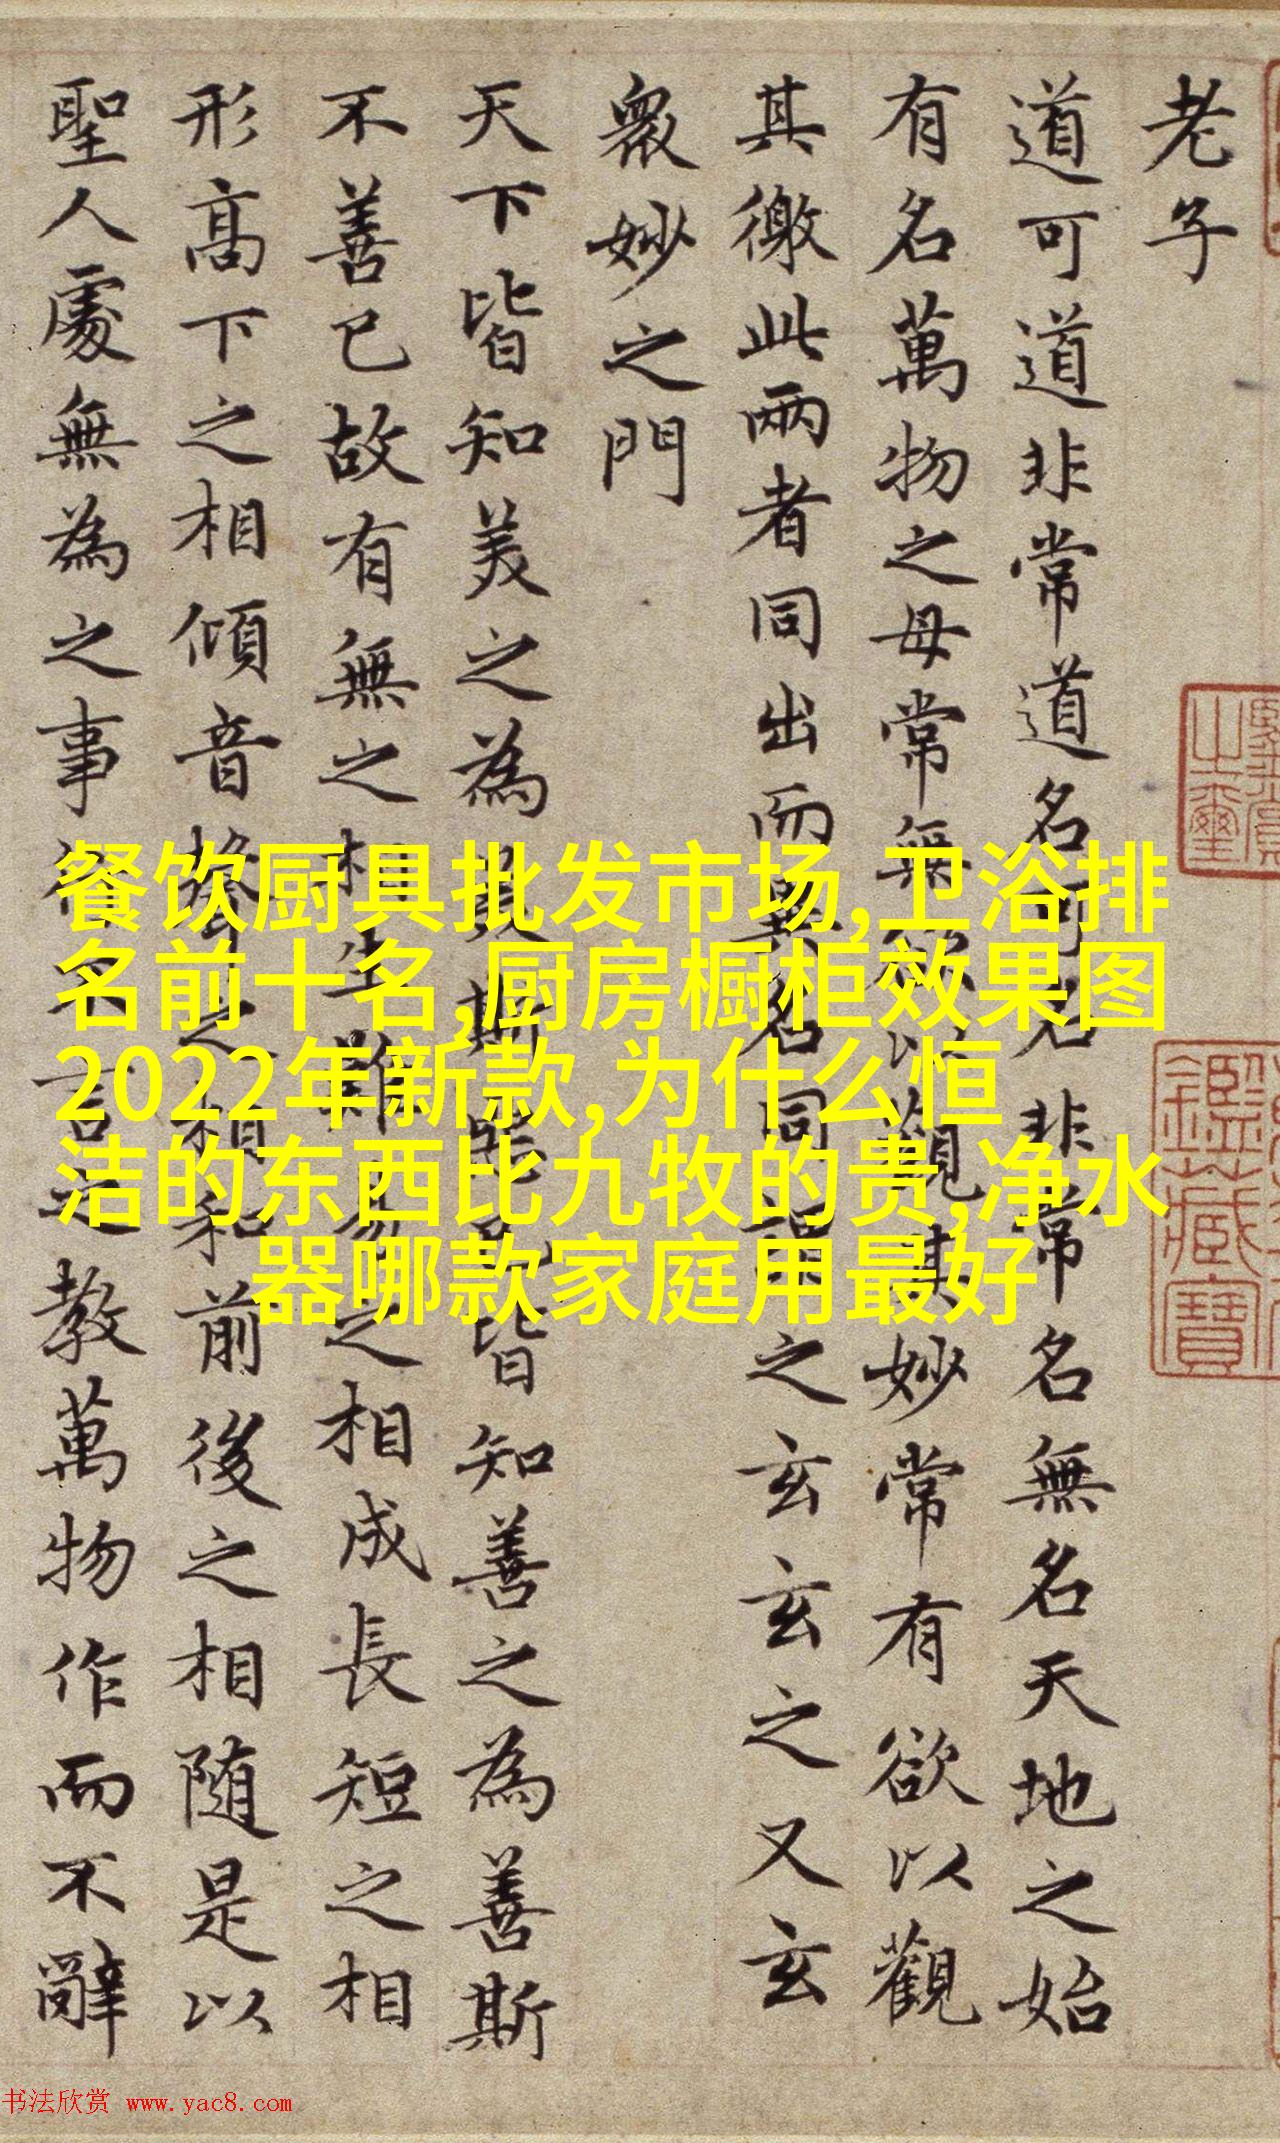 老子
道可道非常道名可名非常名無名天地之始
有名萬物之母常無欲以觀其妙常有欲以觀
其徼此兩者同出而異名同謂之玄玄之又玄
衆妙之門
天下皆知美之為美斯惡已皆知善之為善斯
不善已故有無之相生難易之相成長短之相
形高下之相傾音聲之相和前後之相随是以
聖人處無為之事行不言之教萬物作而不辭
餐饮厨具批发市场,卫浴排
名前十名,厨房橱柜效果图
2022年新款,为什么恒
洁的东西比九牧的贵,净水
器哪款家庭用最好
鑑藏寶
书法欣赏 www.yac8.com